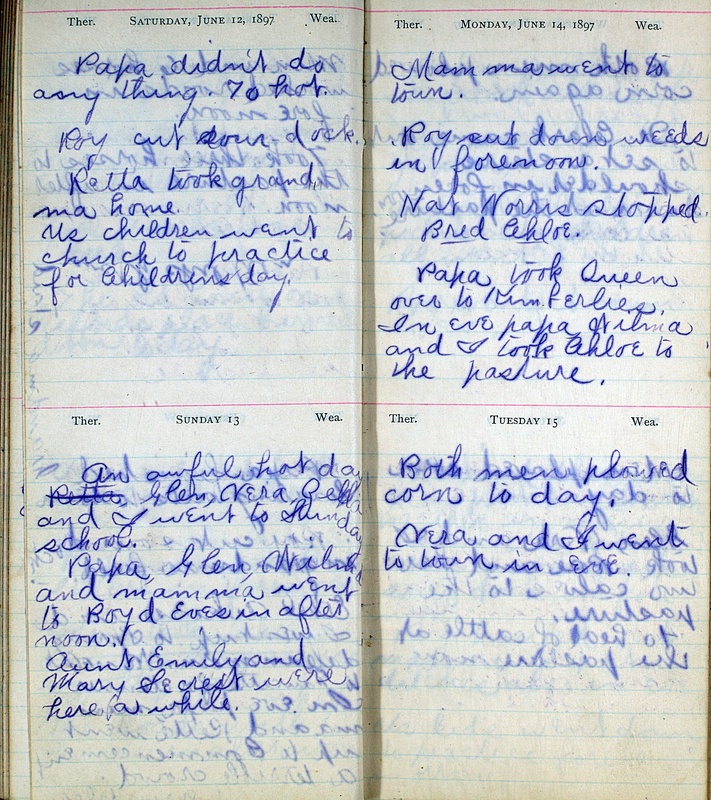 Ther. Saturday, June 12, 1897 Wea.
Papa didn't do
any thing To hot.
Roy cut sour dock.
Retta took grand
ma home.
Us children went to
church to practice
for Childrens day.
Ther. Sunday 13 Wea.
An awful hot day
Retta Glen, Vera,
and I went to Sunday
school.
Papa, Glen, Wilma
and mamma went
to Boyd Eves in after
noon.
Aunt Emily and
Mary Secrest were
here a while.
Ther. Monday, June 14, 1897 Wea.
Mamma went to
town.
Roy cut down weeds
in forenoon.
Nat Norris stopped.
Bred Chloe.
Papa took Queen
over to Kimberlies.
In eve papa Wilma
and I took Chloe to
the pasture.
Ther. Tuesday 15 Wea.
Both men plowed
corn to day.
Vera and I went
to town in eve.